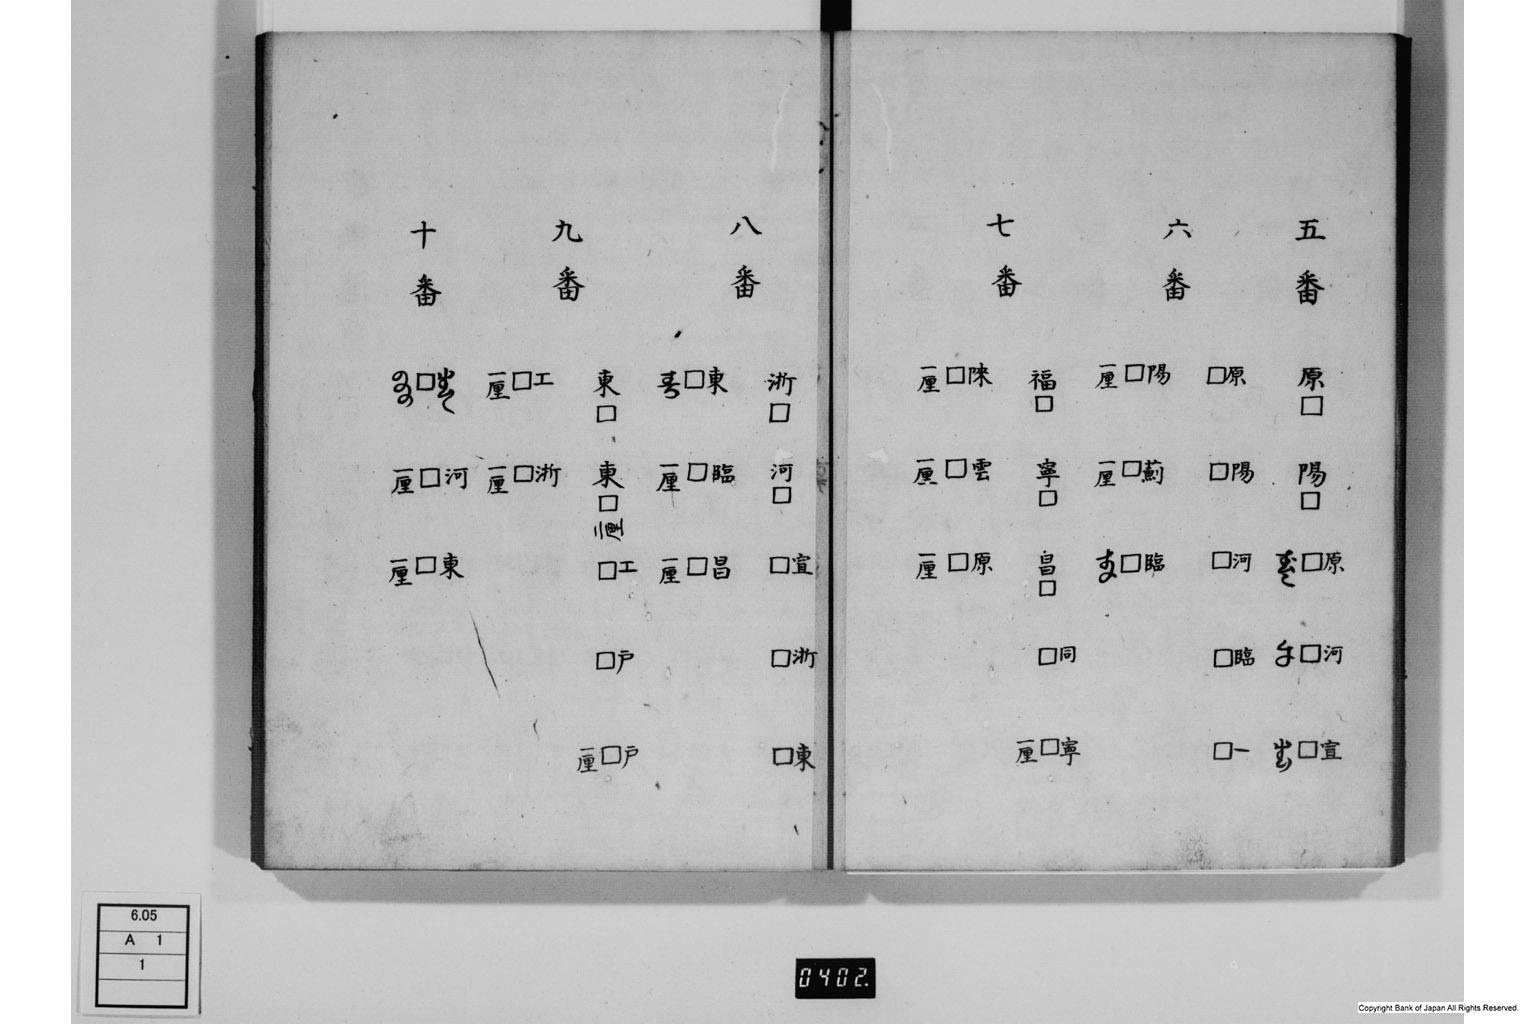 五番
原□
陽□
原□
河□
宣□
六番
□原
□陽
□河
□臨
□一
陽□厘
薊□厘
臨□
七番
福□
寧□
昌□
□同
寧□厘
陜□厘
雲□厘
原□厘
八番
浙□
河□
□宣
□浙
□東
東□
臨□厘
昌□厘
九番
東□
東□
□工
□戸
戸□厘
工□厘
浙□厘
十番
□
河□厘
東□厘
6.05
A 1
1
0402.
Copyright Bank of Japan All Rights Reserved.